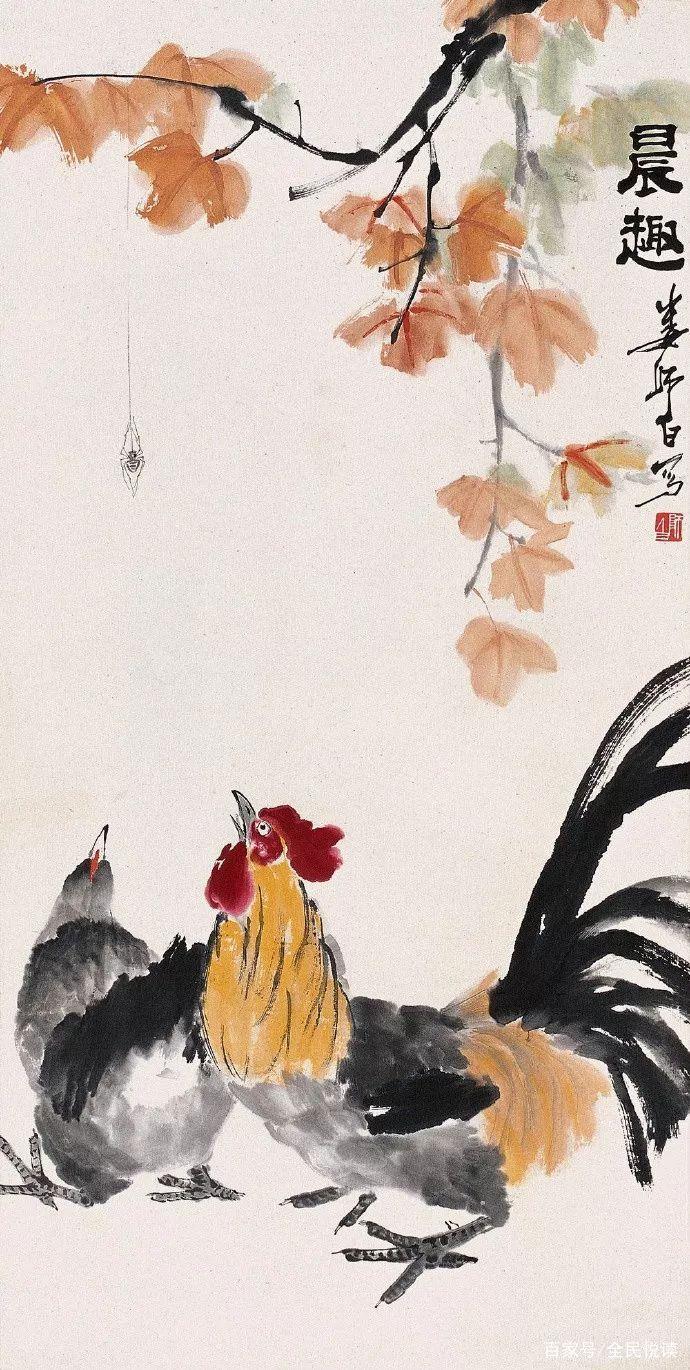 晨趣
娄师白写
百家号/全民悦读